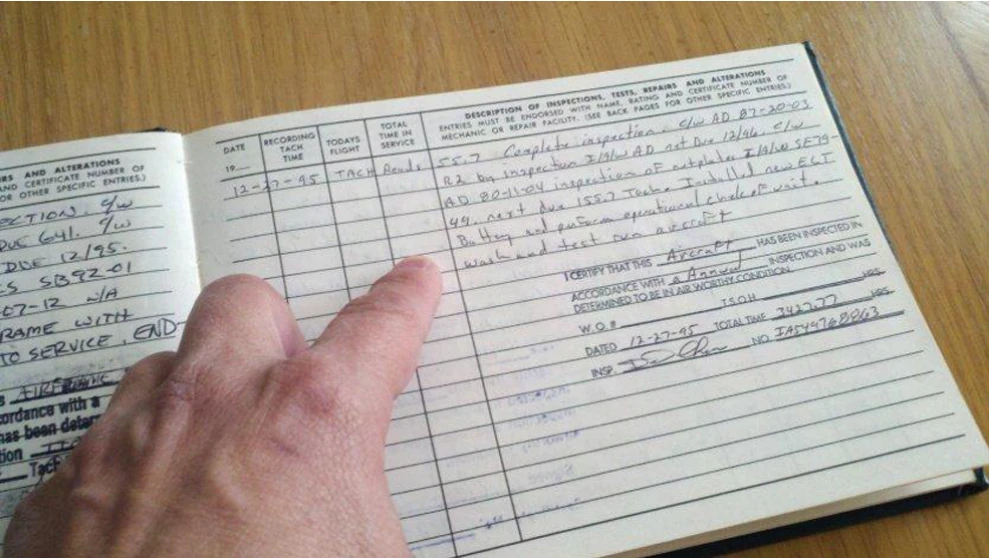 RS AND ALTERATIONS
AND CERTIFICATE NUMBER OF
OR OTHER SPECIFIC ENTRIES.)
ECTION. c/w
DUE 641. c/w
DUE 12/95.
ES SB92-01
07-12 N/A
RAME WITH
TO SERVICE. END-
AIRFRAME
cordance with a
has been deter
tion
Tach
DATE
19
RECORDING
TACH
TIME
TODAYS
FLIGHT
TOTAL
TIME IN
SERVICE
DESCRIPTION OF INSPECTIONS, TESTS, REPAIRS AND ALTERATIONS
ENTRIES MUST BE ENDORSED WITH NAME, RATING AND CERTIFICATE NUMBER OF
MECHANIC OR REPAIR FACILITY. (SEE BACK PAGES FOR OTHER SPECIFIC ENTRIES.)
12-27-95 TACH Reads 55.7 Complete inspection. c/w AD 87-20-03
R2 by inspection I/A/W AD next Due 12/96. c/w
AD 80-11-04 inspection of nutplates I/A/W SE79-
49. next due 155.7 Tach. Installed new ELT
Battery and perform operational check of unit.
wash and test run aircraft
I CERTIFY THAT THIS Aircraft HAS BEEN INSPECTED IN
ACCORDANCE WITH a Annual INSPECTION AND WAS
DETERMINED TO BE IN AIR WORTHY CONDITION.
W.O.# T.S.O.H. HRS.
DATED 12-27-95 TOTAL TIME 3427.77 HRS.
INSP. NO.